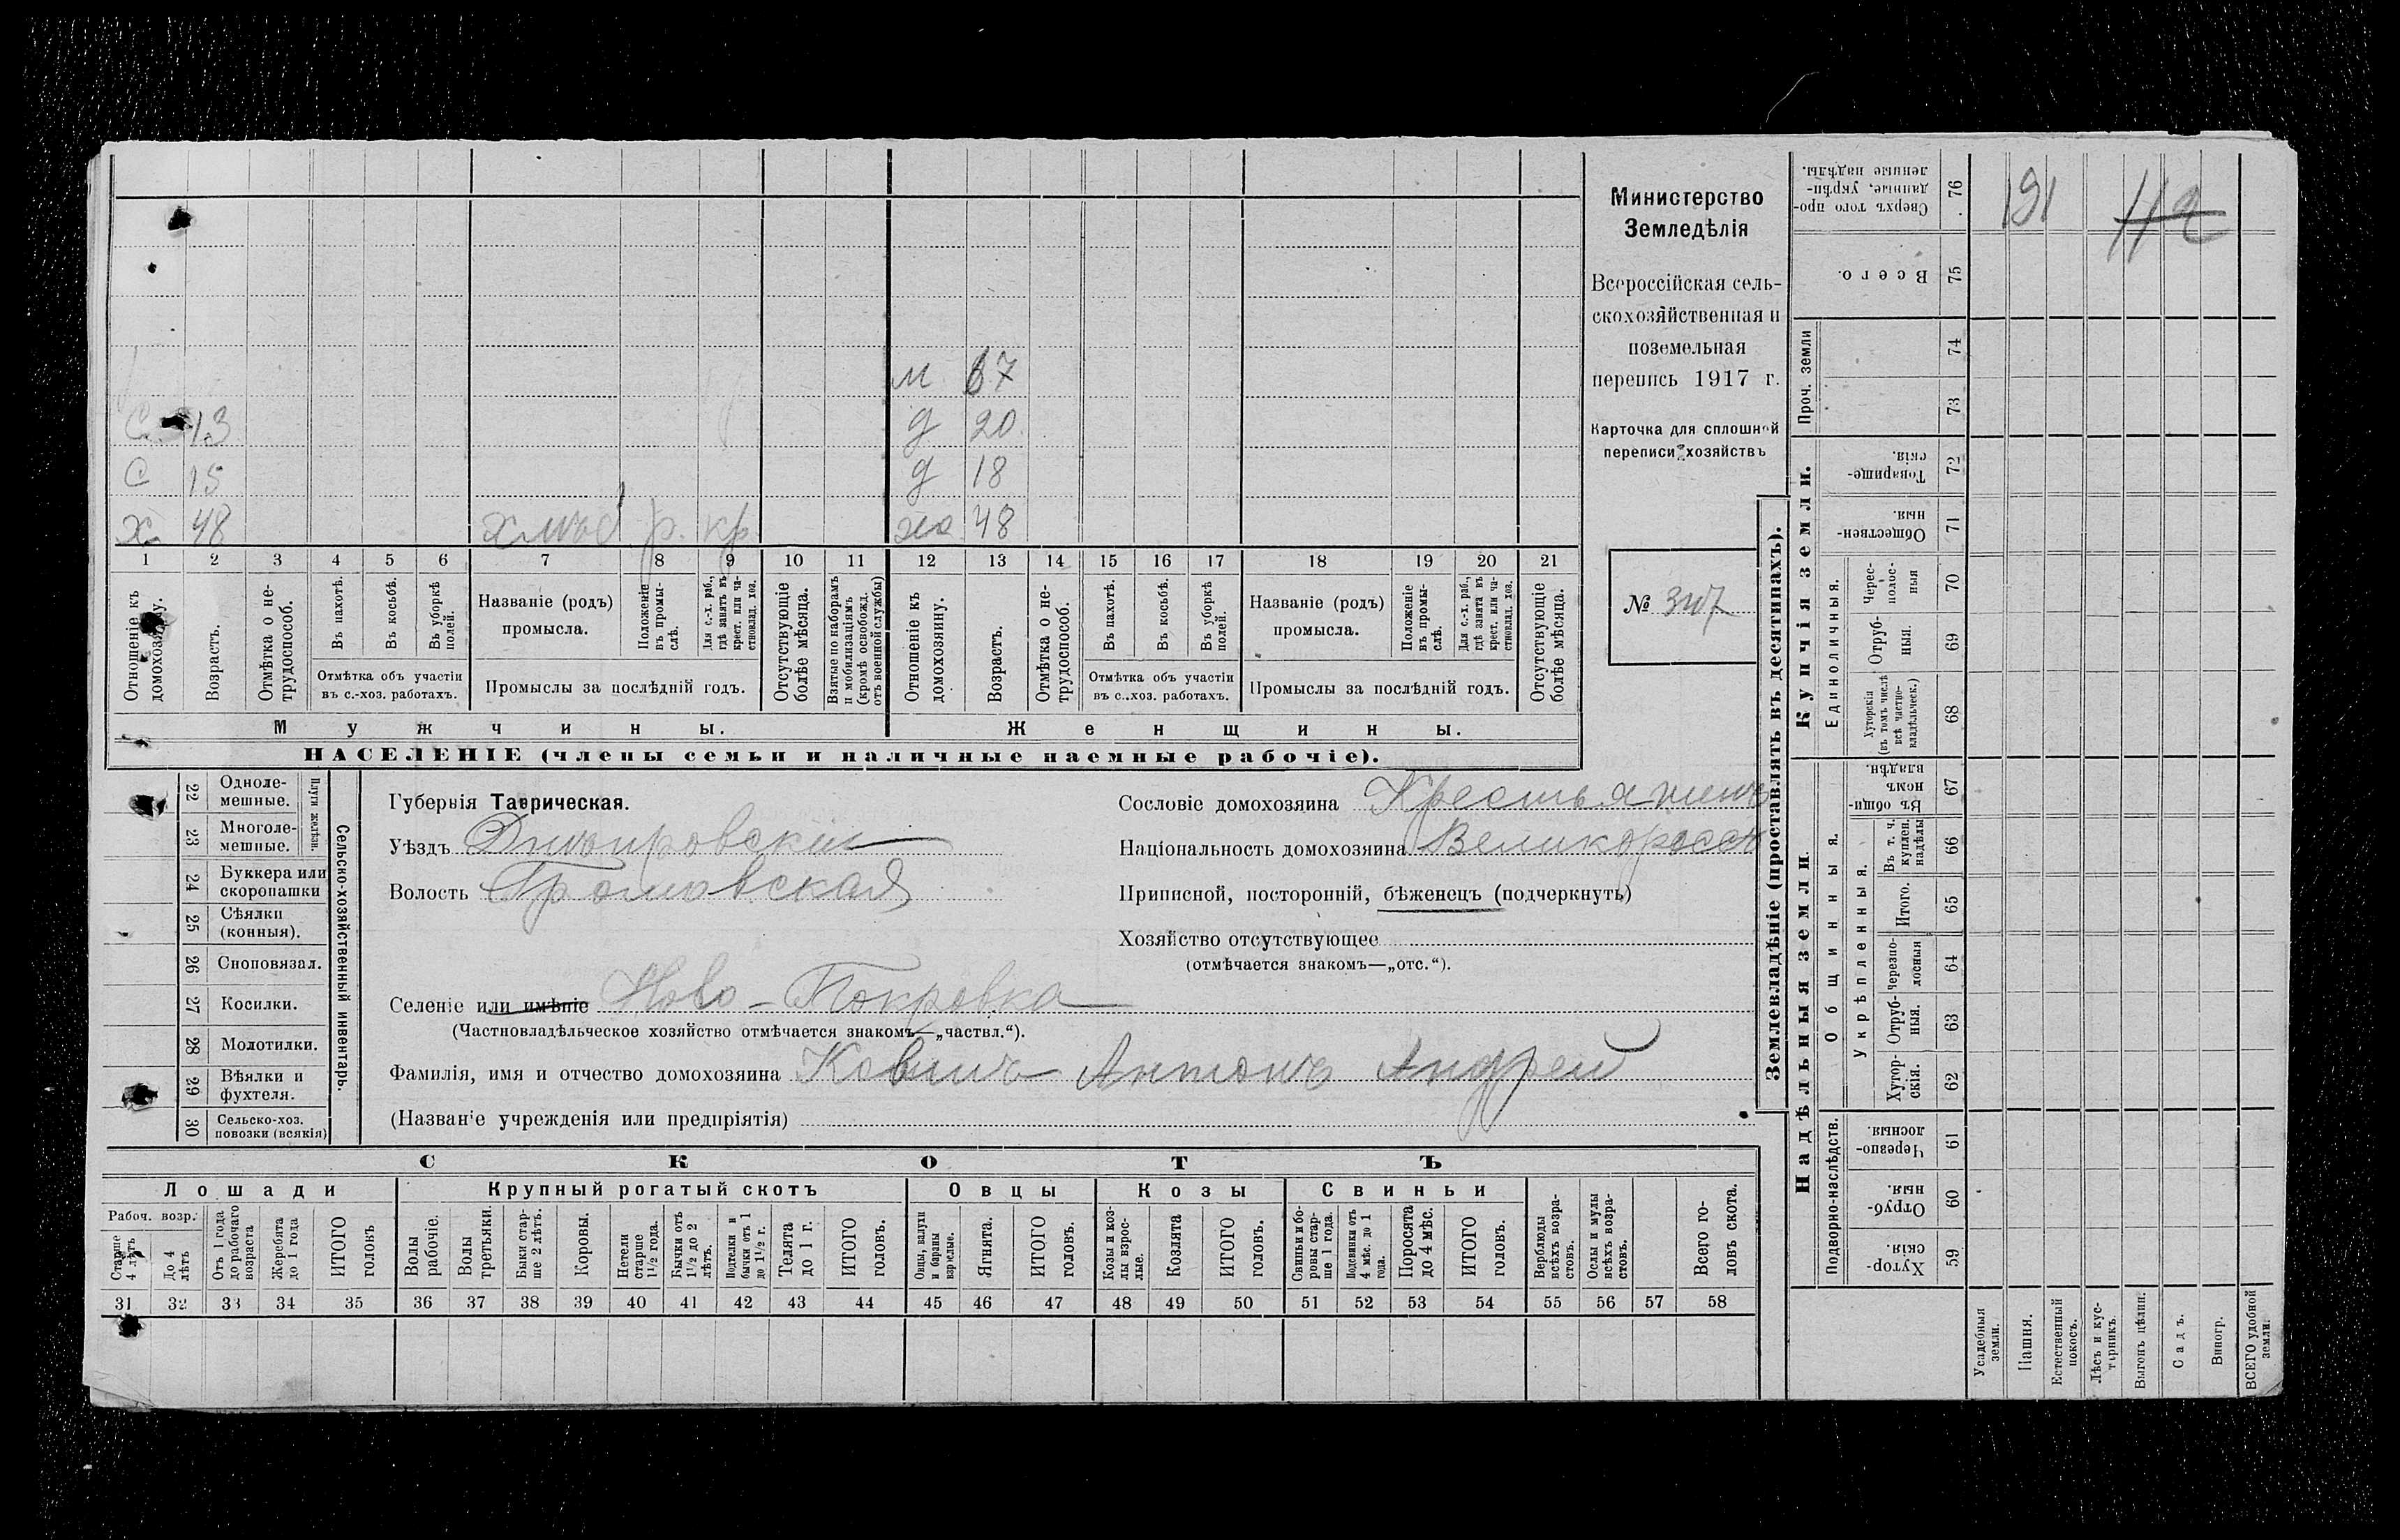 Министерство
Земледѣлія
Всероссійская сель-
скохозяйственная и
поземельная
перепись 1917 г.
Карточка для сплошной
переписи хозяйствъ
№ 307
м 67
С 13 д 20
С 15 д 18
х 48 р. кр жа 48
1 2 3 4 5 6 7 8 9 10 11 12 13 14 15 16 17 18 19 20 21
Отношеніе къ домохозяину.
Возрастъ.
Отмѣтка о не-трудоспособ.
Въ пахотѣ.
Въ косьбѣ.
Въ уборкѣ полей.
Отмѣтка объ участіи
въ с.-хоз. работахъ.
Названіе (родъ)
промысла.
Положеніе въ промы-слѣ.
Для с.-х. раб., гдѣ занятъ въ крест. или ча-стновлад. хоз.
Промыслы за послѣдній годъ.
Отсутствующіе болѣе мѣсяца.
Взятые по наборамъ и мобилизаціямъ (кромѣ освобожд. отъ военной службы)
Отношеніе къ домохозяину.
Возрастъ.
Отмѣтка о не-трудоспособ.
Въ пахотѣ.
Въ косьбѣ.
Въ уборкѣ полей.
Отмѣтка объ участіи
въ с.-хоз. работахъ.
Названіе (родъ)
промысла.
Положеніе въ промы-слѣ.
Для с.-х. раб., гдѣ занята въ крест. или ча-стновлад. хоз.
Промыслы за послѣдній годъ.
Отсутствующіе болѣе мѣсяца.
Мужчины. Женщины.
НАСЕЛЕНІЕ (члены семьи и наличные наемные рабочіе).
Сельско-хозяйственный инвентарь.
Плуги желѣзн.
22 Одноле-мешные.
23 Многоле-мешные.
24 Буккера или скоропашки
25 Сѣялки (конныя).
26 Сноповязал.
27 Косилки.
28 Молотилки.
29 Вѣялки и фухтеля.
30 Сельско-хоз. повозки (всякія)
Губернія Таврическая.
Уѣздъ Днѣпровскій
Волость Громовская
Сословіе домохозяина Крестьянинъ
Національность домохозяина Великороссъ
Приписной, посторонній, бѣженецъ (подчеркнуть)
Хозяйство отсутствующее
(отмѣчается знакомъ—„отс.“).
Селеніе или имѣніе Ново-Покровка
(Частновладѣльческое хозяйство отмѣчается знакомъ—„частвл.“).
Фамилія, имя и отчество домохозяина Антонъ Андрей
(Названіе учрежденія или предпріятія)
СКОТЪ
Лошади Крупный рогатый скотъ Овцы Козы Свиньи
Рабоч. возр.
Старше 4 лѣтъ
До 4 лѣтъ
Отъ 1 года до рабочаго возраста
Жеребята до 1 года
ИТОГО головъ
Волы рабочіе.
Волы третьяки.
Быки стар-ше 2 лѣтъ.
Коровы.
Нетели старше 1½ года.
Бычки отъ 1½ до 2 лѣтъ.
Подтелки и бычки отъ 1 до 1½ г.
Телята до 1 г.
ИТОГО головъ.
Овцы, валухи и бараны взрослые.
Ягнята.
ИТОГО головъ.
Козы и коз-лы взрос-лые.
Козлята
ИТОГО головъ.
Свиньи и бо-ровы стар-ше 1 года.
Подсвинки отъ 4 мѣс. до 1 года.
Поросята до 4 мѣс.
ИТОГО головъ.
Верблюды всѣхъ возра-стовъ.
Ослы и мулы всѣхъ возра-стовъ.
Всего го-ловъ скота.
31 32 33 34 35 36 37 38 39 40 41 42 43 44 45 46 47 48 49 50 51 52 53 54 55 56 57 58
Землевладѣніе (проставлять въ десятинахъ).
191
Сверхъ того про-данные, укрѣп-ленные надѣлы. 76
Всего. 75
Проч. земли
74
73
Купчія земли.
Товарище-скія. 72
Обществен-ныя. 71
Единоличныя.
Черес-полос-ныя 70
Отруб-ныя. 69
Хуторскія (въ томъ числѣ всѣ частно-владѣльческ.) 68
Надѣльныя земли.
Общинныя.
Въ общин-номъ владѣн. 67
Укрѣпленныя.
Въ т. ч. куплен. надѣлы 66
Итого. 65
Черезпо-лосныя 64
Отруб-ныя. 63
Хутор-скія. 62
Подворно-наслѣдств.
Черезпо-лосныя. 61
Отруб-ныя. 60
Хутор-скія. 59
Усадебныя земли.
Пашня.
Естественный покосъ.
Лѣсъ и кус-тарникъ.
Выгонъ цѣлин.
Садъ.
Виногр.
ВСЕГО удобной земли.